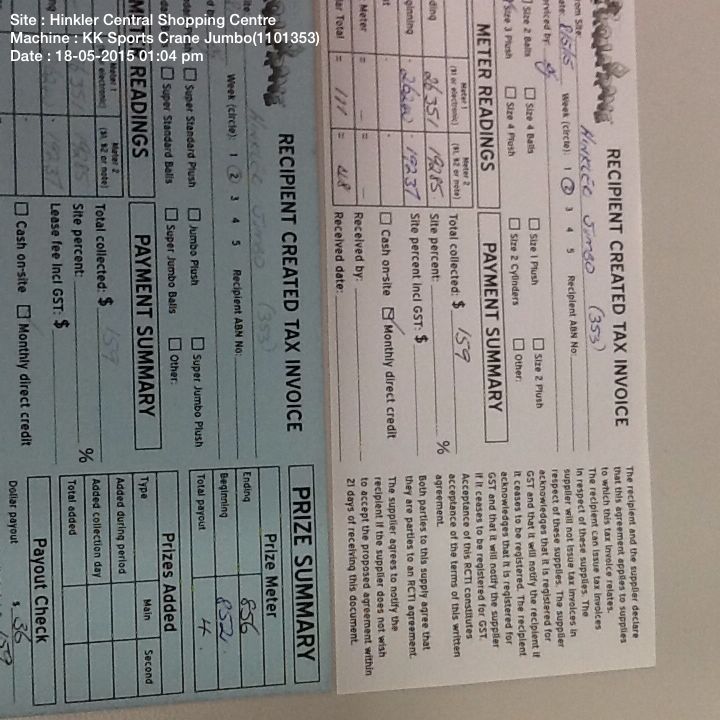 Site : Hinkler Central Shopping Centre
Machine : KK Sports Crane Jumbo(1101353)
Date : 18-05-2015 01:04 pm
RECIPIENT CREATED TAX INVOICE
Hinkler Jumbo (353)
Week (circle): 1 2 3 4 5 Recipient ABN No:
Size 2 Balls Size 4 Balls Size 1 Plush Size 2 Plush
Size 3 Plush Size 4 Plush Size 2 Cylinders Other:
METER READINGS
Meter 1 ($1 or electronic) Meter 2 ($1, $2 or note)
26351 19285
26240 19237
= 111 = 48
PAYMENT SUMMARY
Total collected: $ 159
Site percent: %
Site percent incl GST: $
Cash on-site Monthly direct credit
Received by:
Received date:
The recipient and the supplier declare
that this agreement applies to supplies
to which this tax invoice relates.
The recipient can issue tax invoices
in respect of these supplies. The
supplier will not issue tax invoices in
respect of these supplies. The supplier
acknowledges that it is registered for
GST and that it will notify the recipient if
it ceases to be registered. The recipient
acknowledges that it is registered for
GST and that it will notify the supplier
if it ceases to be registered for GST.
Acceptance of this RCTI constitutes
acceptance of the terms of this written
agreement.
Both parties to this supply agree that
they are parties to an RCTI agreement.
The supplier agrees to notify the
recipient if the supplier does not wish
to accept the proposed agreement within
21 days of receiving this document.
RECIPIENT CREATED TAX INVOICE
Hinkler Jumbo (353)
Week (circle): 1 2 3 4 5 Recipient ABN No:
Super Standard Plush Jumbo Plush Super Jumbo Plush
Super Standard Balls Super Jumbo Balls Other:
METER READINGS
Meter 2 ($1, $2 or note)
PAYMENT SUMMARY
Total collected: $ 159
Site percent: %
Lease fee incl GST: $
Cash on-site Monthly direct credit
PRIZE SUMMARY
Prize Meter
Ending 856
Beginning 852
Total payout 4
Prizes Added
Type Main Second
Added during period
Added collection day
Total added
Payout Check
Dollar payout $ 36
159